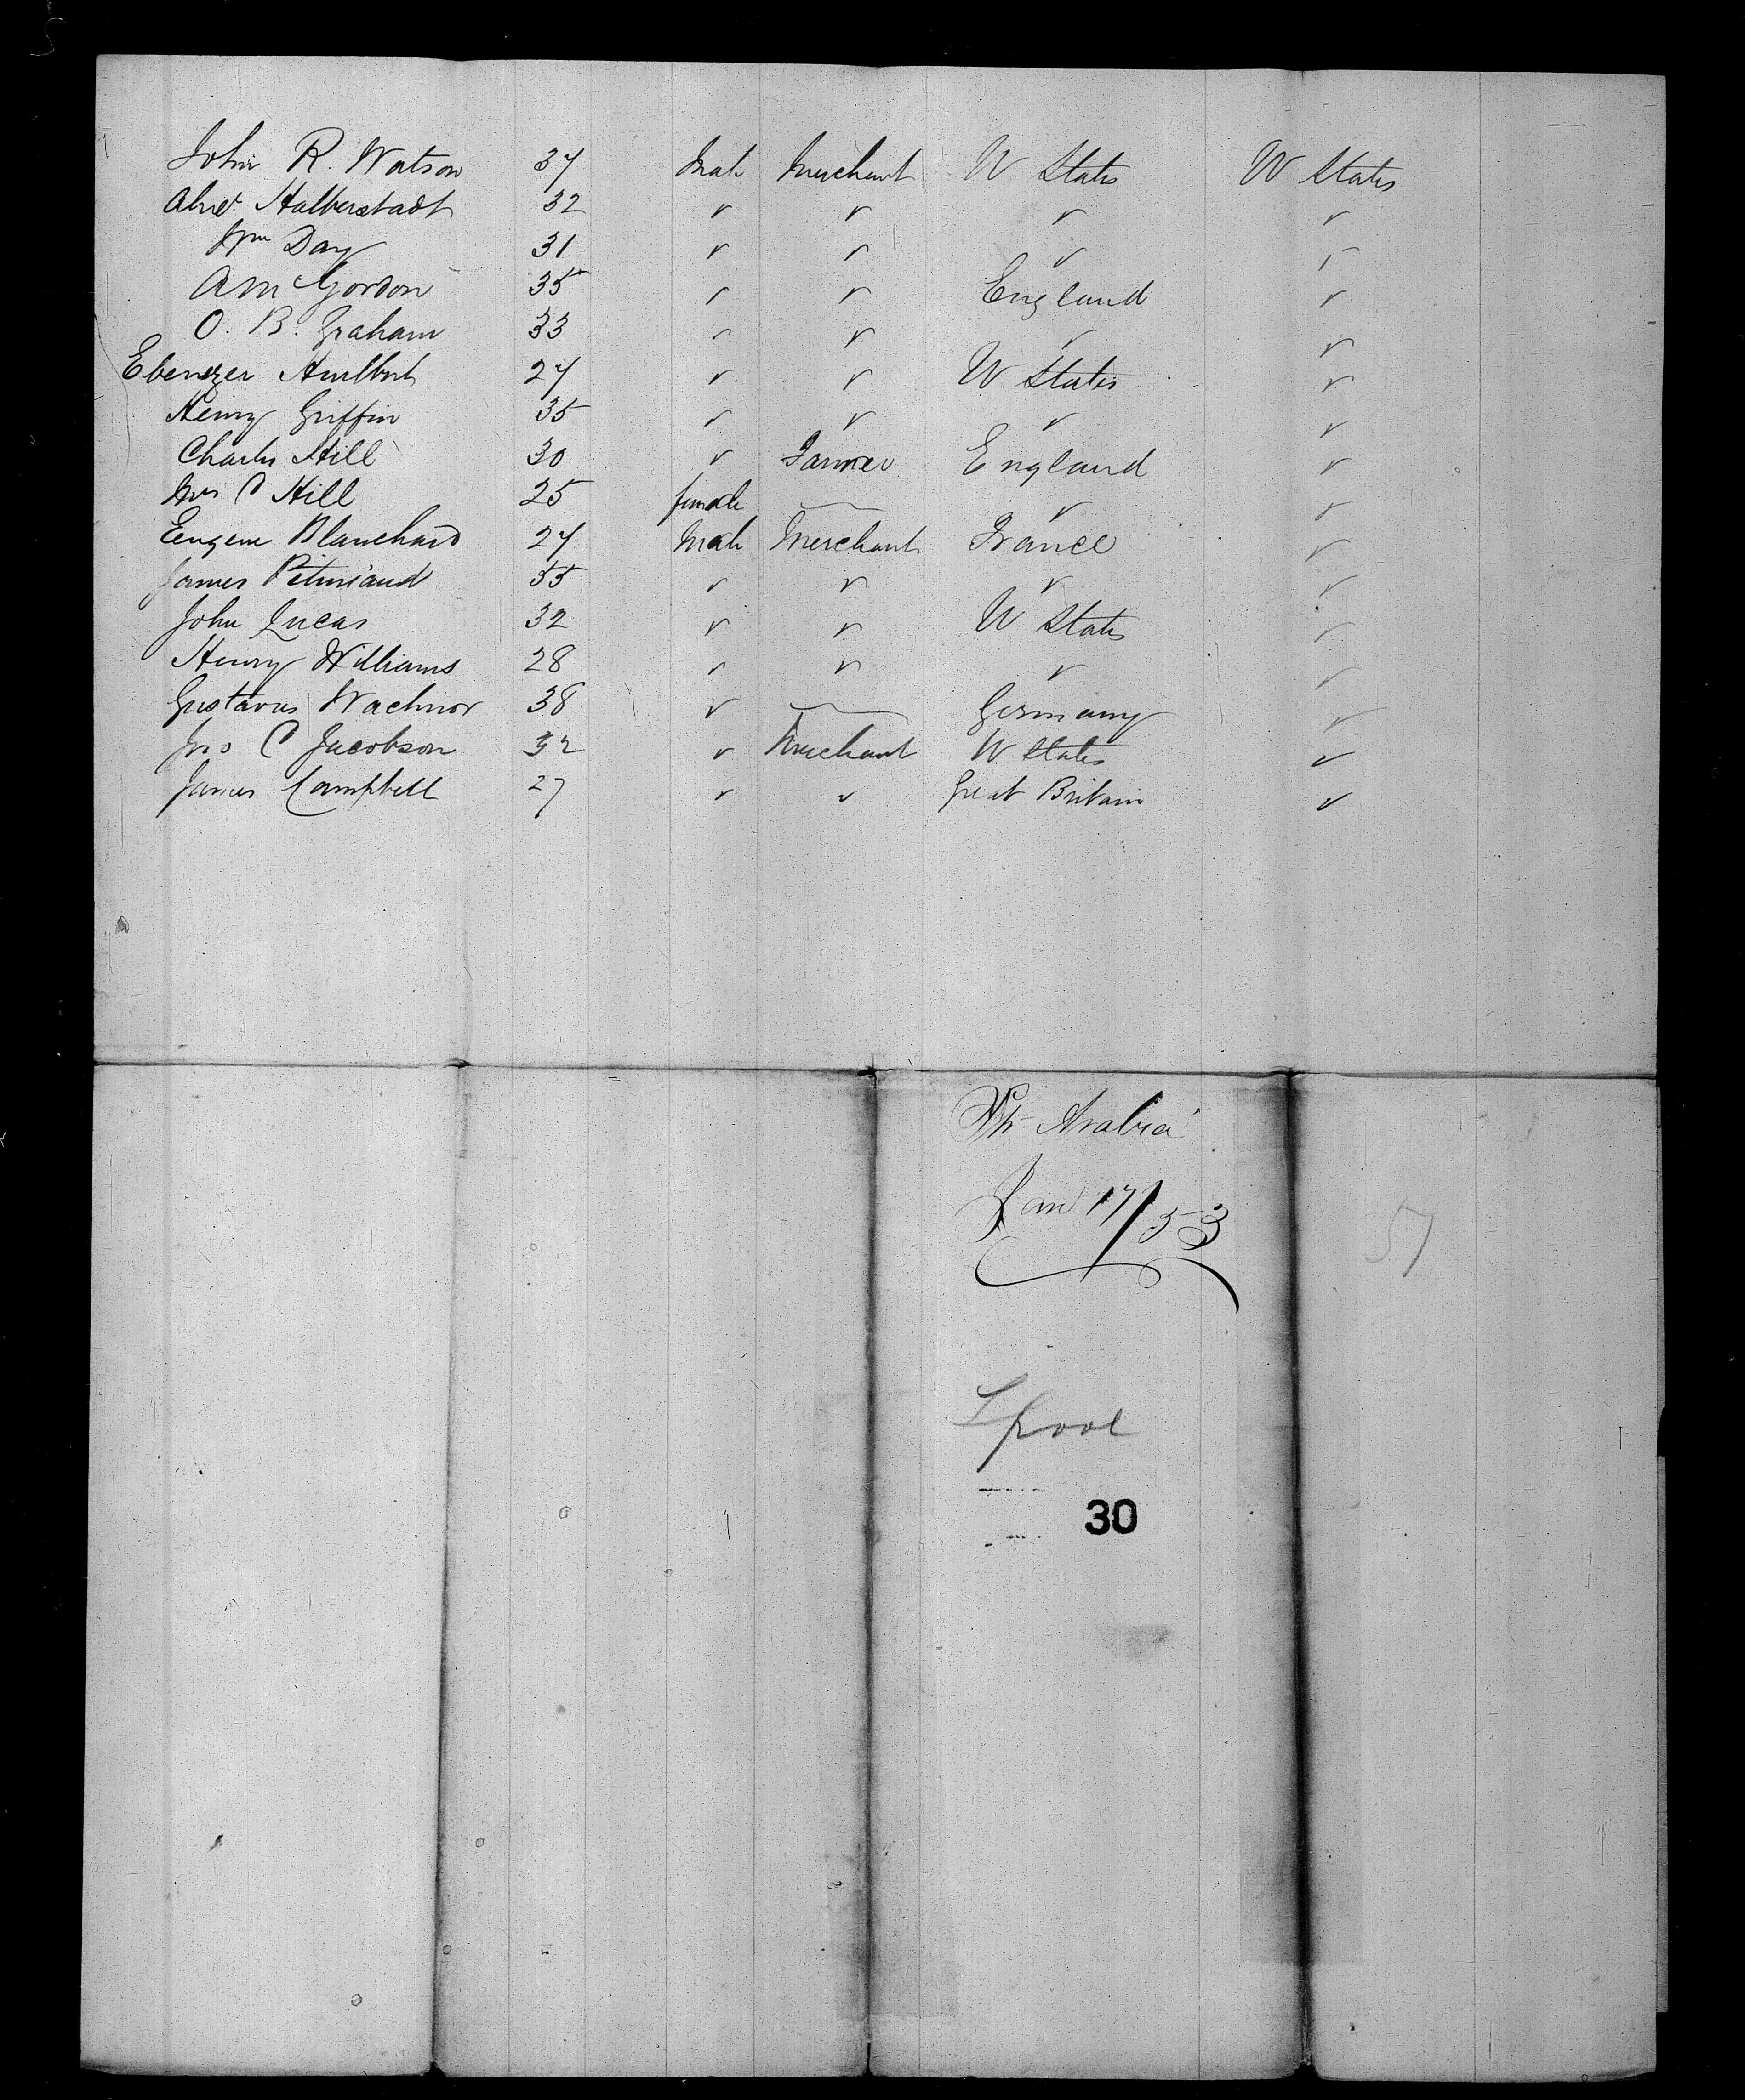 John R. Watson 37 Male Merchant U States U States
Alexr. Halberstadt 32 " " " "
Wm Day 31 " " " "
A Mc Gordon 35 " " England "
O. B. Graham 33 " " " "
Ebenezer Hurlbut 27 " " U States "
Henry Griffin 35 " " " "
Charles Hill 30 " Farmer England "
Mrs C Hill 25 female — " "
Eugene Blanchard 27 Male Merchant France "
James 35 " " " "
John Lucas 32 " " U States "
Henry Williams 28 " " " "
Gustavus 38 " — Germany "
Jno C Jacobson 32 " Merchant U States "
James Campbell 27 " " Great Britain "
Arabia
Jan 17/53
57
Lpool
30